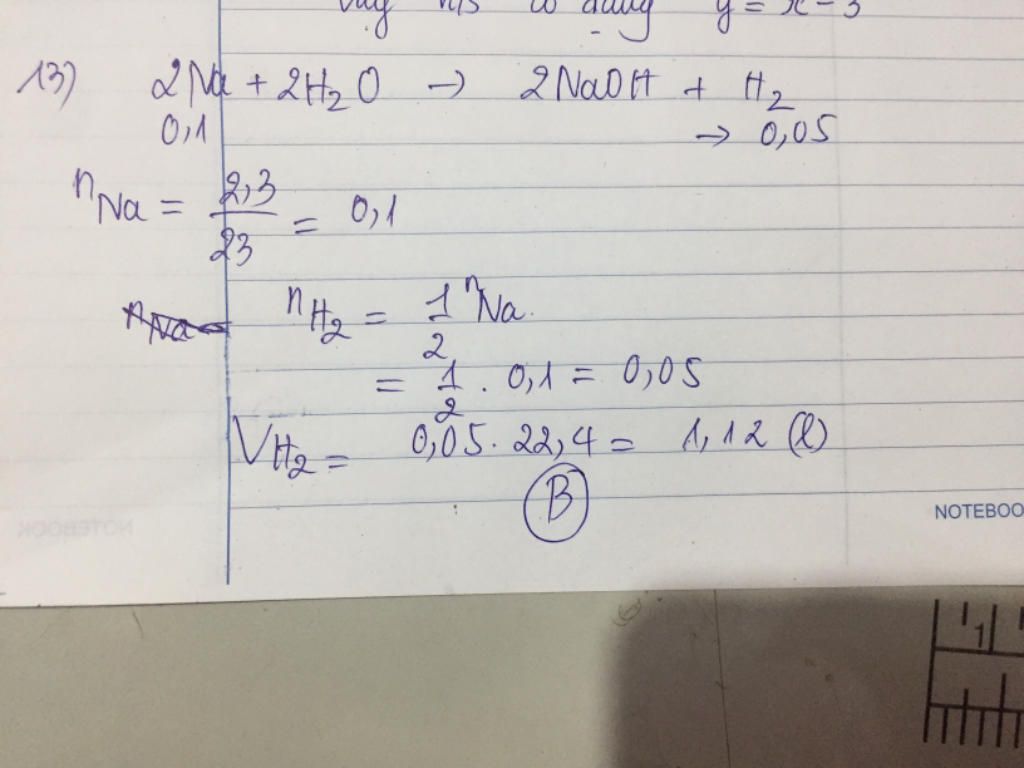 y = x - 3
13) 2Na + 2H₂O → 2NaOH + H₂
0,1 → 0,05
nNa = 2,3/23 = 0,1
nH₂ = 1/2 nNa.
= 1/2 . 0,1 = 0,05
VH₂ = 0,05. 22,4 = 1,12 (l)
B
NOTEBOO
NOTEBOOK
1